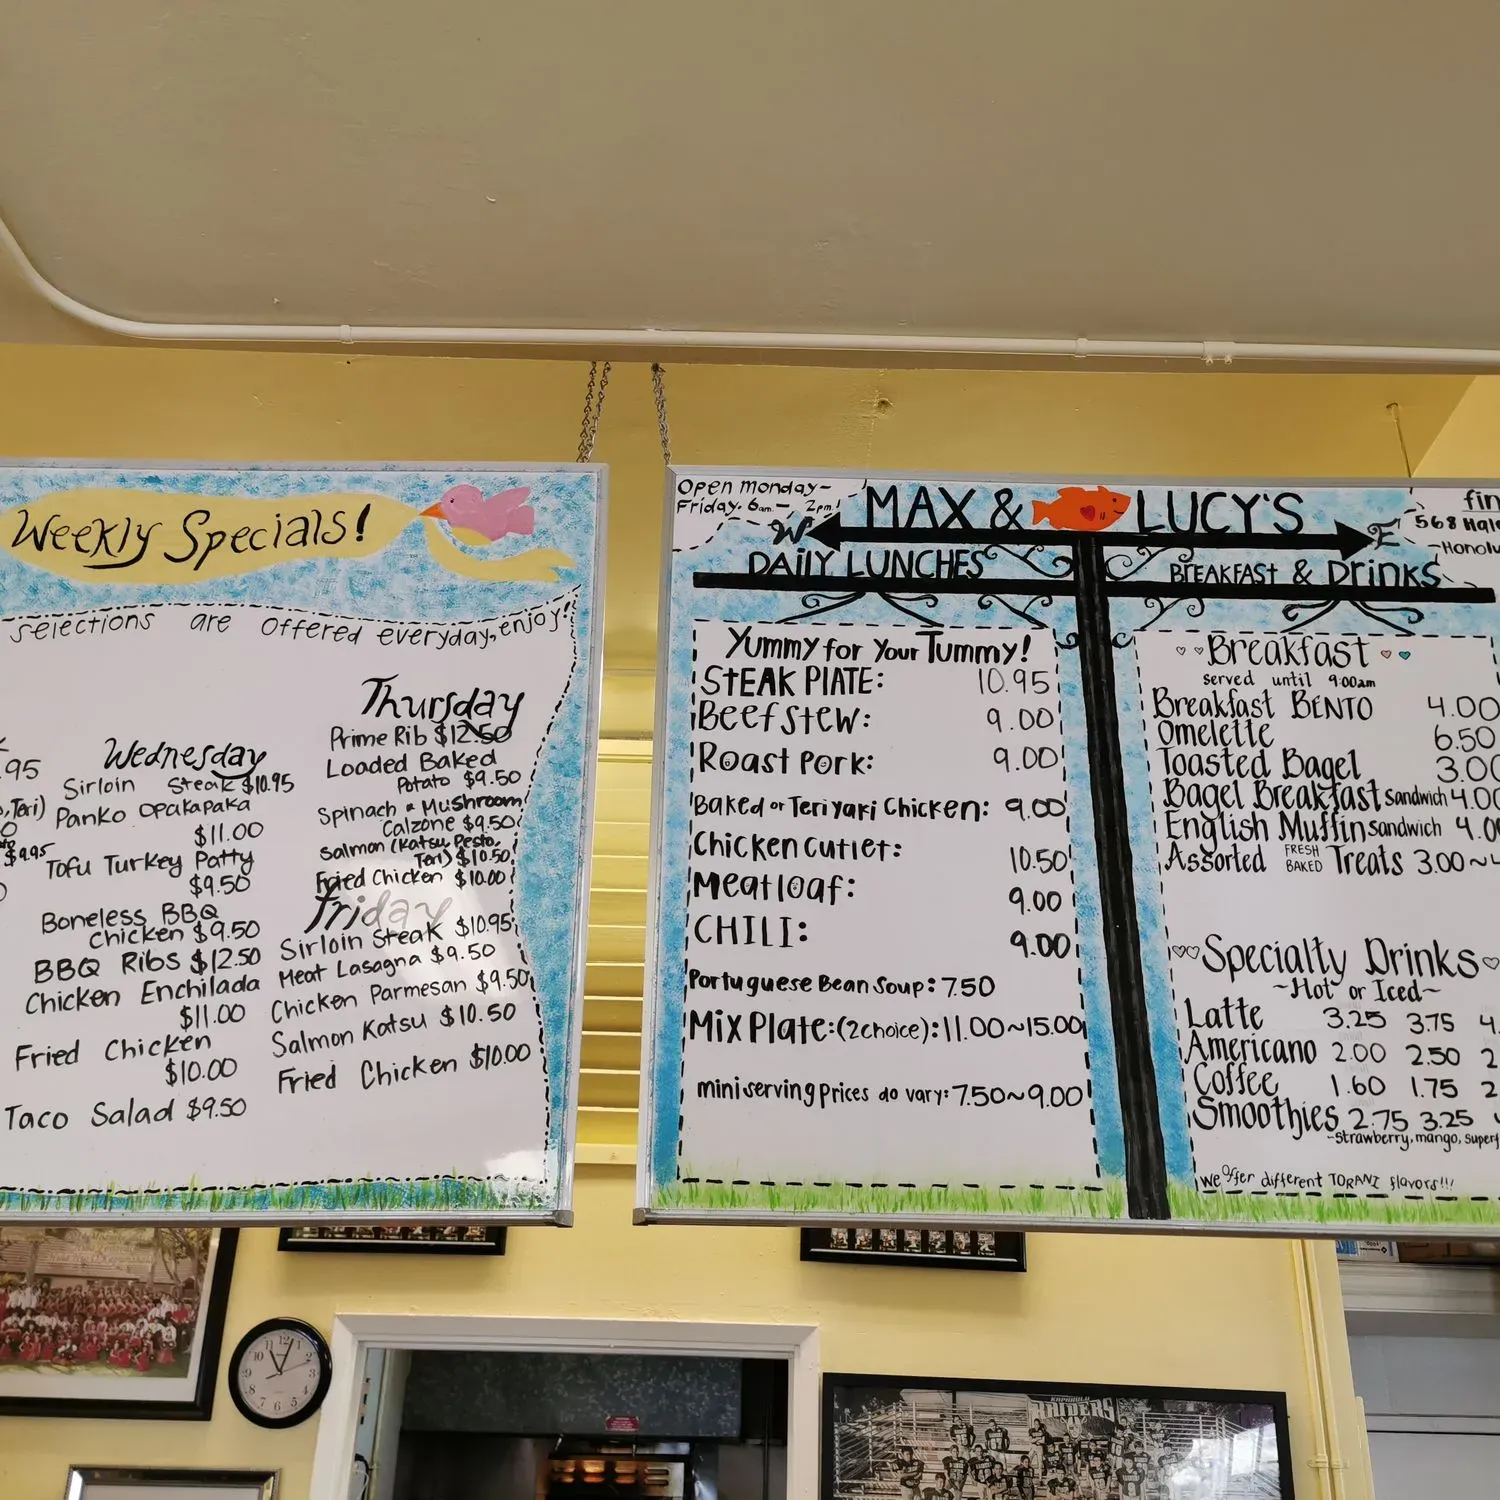 Weekly Specials!
selections are offered everyday, enjoy!
.95
, Teri)
$9.95
Wednesday
Sirloin Steak $10.95
Panko Opakapaka
$11.00
Tofu Turkey Patty
$9.50
Boneless BBQ
Chicken $9.50
BBQ Ribs $12.50
Chicken Enchilada
$11.00
Fried Chicken
$10.00
Taco Salad $9.50
Thursday
Prime Rib $12.50
Loaded Baked
Potato $9.50
Spinach & Mushroom
Calzone $9.50
Salmon (Katsu, Pesto,
Teri) $10.50
Fried Chicken $10.00
Friday
Sirloin Steak $10.95
Meat Lasagna $9.50
Chicken Parmesan $9.50
Salmon Katsu $10.50
Fried Chicken $10.00
Open Monday-
Friday. 6am - 2pm!
MAX & LUCY'S
W
E
568 Hale
-Honolu
DAILY LUNCHES
BREAKFAST & DRINKS
Yummy for Your Tummy!
STEAK PLATE: 10.95
Beef stew: 9.00
Roast Pork: 9.00
Baked or Teriyaki Chicken: 9.00
Chicken cutlet: 10.50
Meatloaf: 9.00
CHILI: 9.00
Portuguese Bean Soup: 7.50
Mix Plate: (2 choice): 11.00~15.00
mini serving prices do vary: 7.50~9.00
Breakfast
served until 9:00am
Breakfast BENTO 4.00
Omelette 6.50
Toasted Bagel 3.00
Bagel Breakfast Sandwich 4.00
English Muffin sandwich 4.00
Assorted FRESH BAKED Treats 3.00~
Specialty Drinks
~Hot or Iced~
Latte 3.25 3.75 4.
Americano 2.00 2.50 2
Coffee 1.60 1.75 2
Smoothies 2.75 3.25
-strawberry, mango, superf
we offer different TORANI flavors!!!
RAIDERS